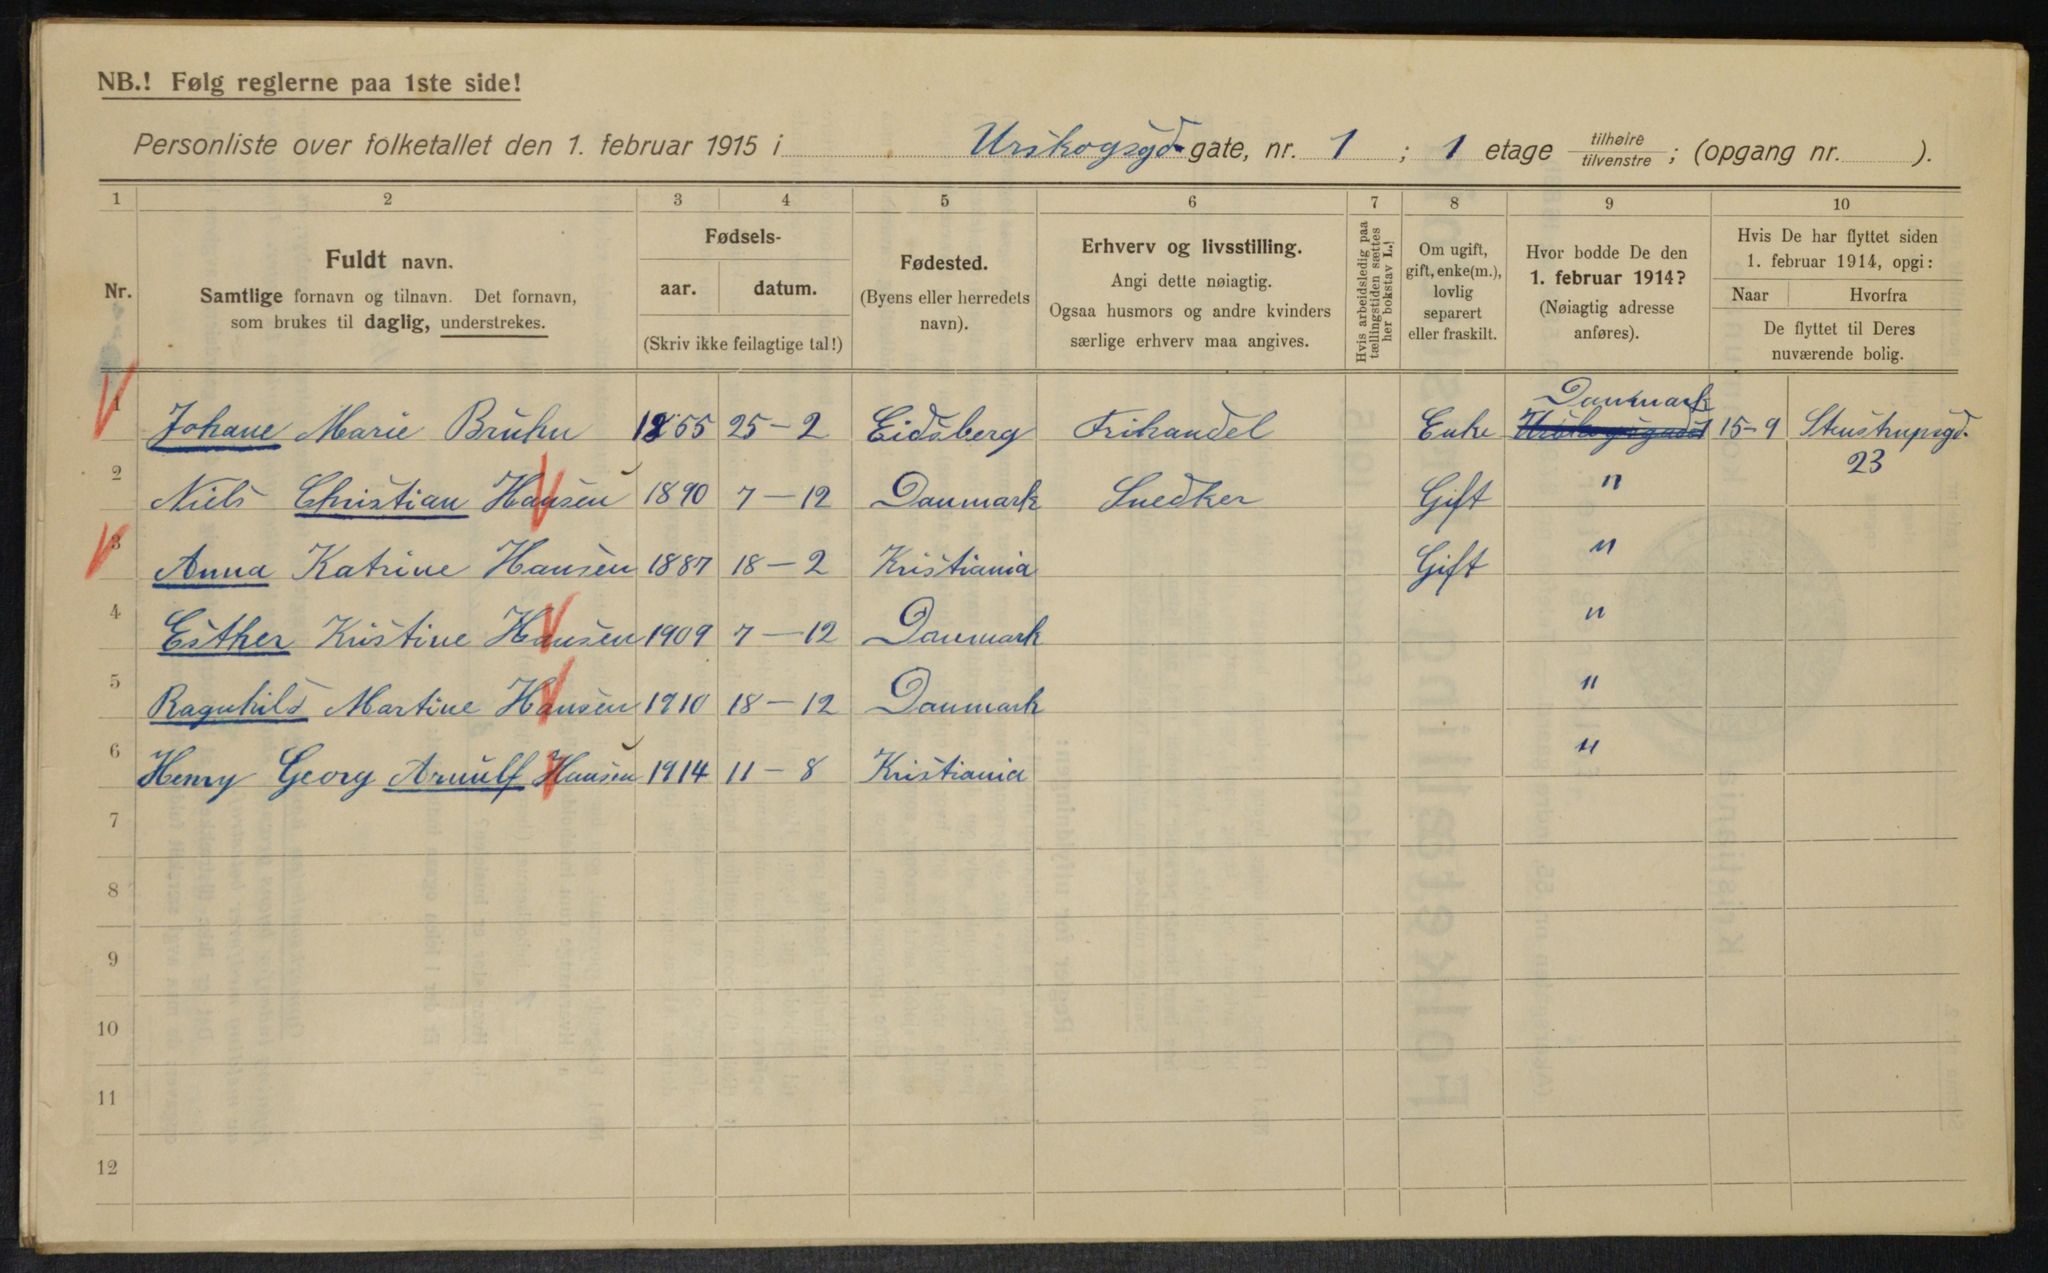 NB.! Følg reglerne paa 1ste side!
Personliste over folketallet den 1. februar 1915 i Urskogsgd. gate, nr. 1 ; 1 etage tilhøire/tilvenstre ; (opgang nr. ).
1 2 3 4 5 6 7 8 9 10
Nr.
Fuldt navn.
Samtlige fornavn og tilnavn. Det fornavn,
som brukes til daglig, understrekes.
Fødsels-
aar. datum.
(Skriv ikke feilagtige tal!)
Fødested.
(Byens eller herredets
navn).
Erhverv og livsstilling.
Angi dette nøiagtig.
Ogsaa husmors og andre kvinders
særlige erhverv maa angives.
Hvis arbeidsledig paa
tællingstiden sættes
her bokstav L.!
Om ugift,
gift, enke(m.),
lovlig
separert
eller fraskilt.
Hvor bodde De den
1. februar 1914?
(Nøiagtig adresse
anføres).
Hvis De har flyttet siden
1. februar 1914, opgi:
Naar Hvorfra
De flyttet til Deres
nuværende bolig.
Danmark
1 Johane Marie Bruhn 1855 25-2 Eidsberg Frihandel Enke 15-9 Stenstrupsgd.
23
2 Niels Christian Hansen 1890 7-12 Danmark Snedker Gift "
3 Anna Katrine Hansen 1887 18-2 Kristiania Gift "
4 Esther Kristine Hansen 1909 7-12 Danmark "
5 Ragnhild Martine Hansen 1910 18-12 Danmark "
6 Henry Georg Arnulf Hansen 1914 11-8 Kristiania "
7
8
9
10
11
12